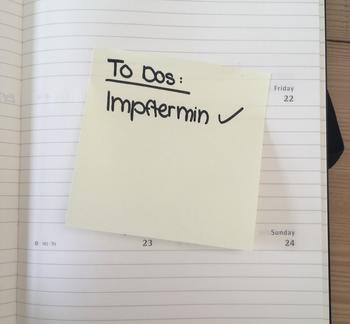 To Dos:
Impftermin ✓
Friday
22
23
Sunday
24